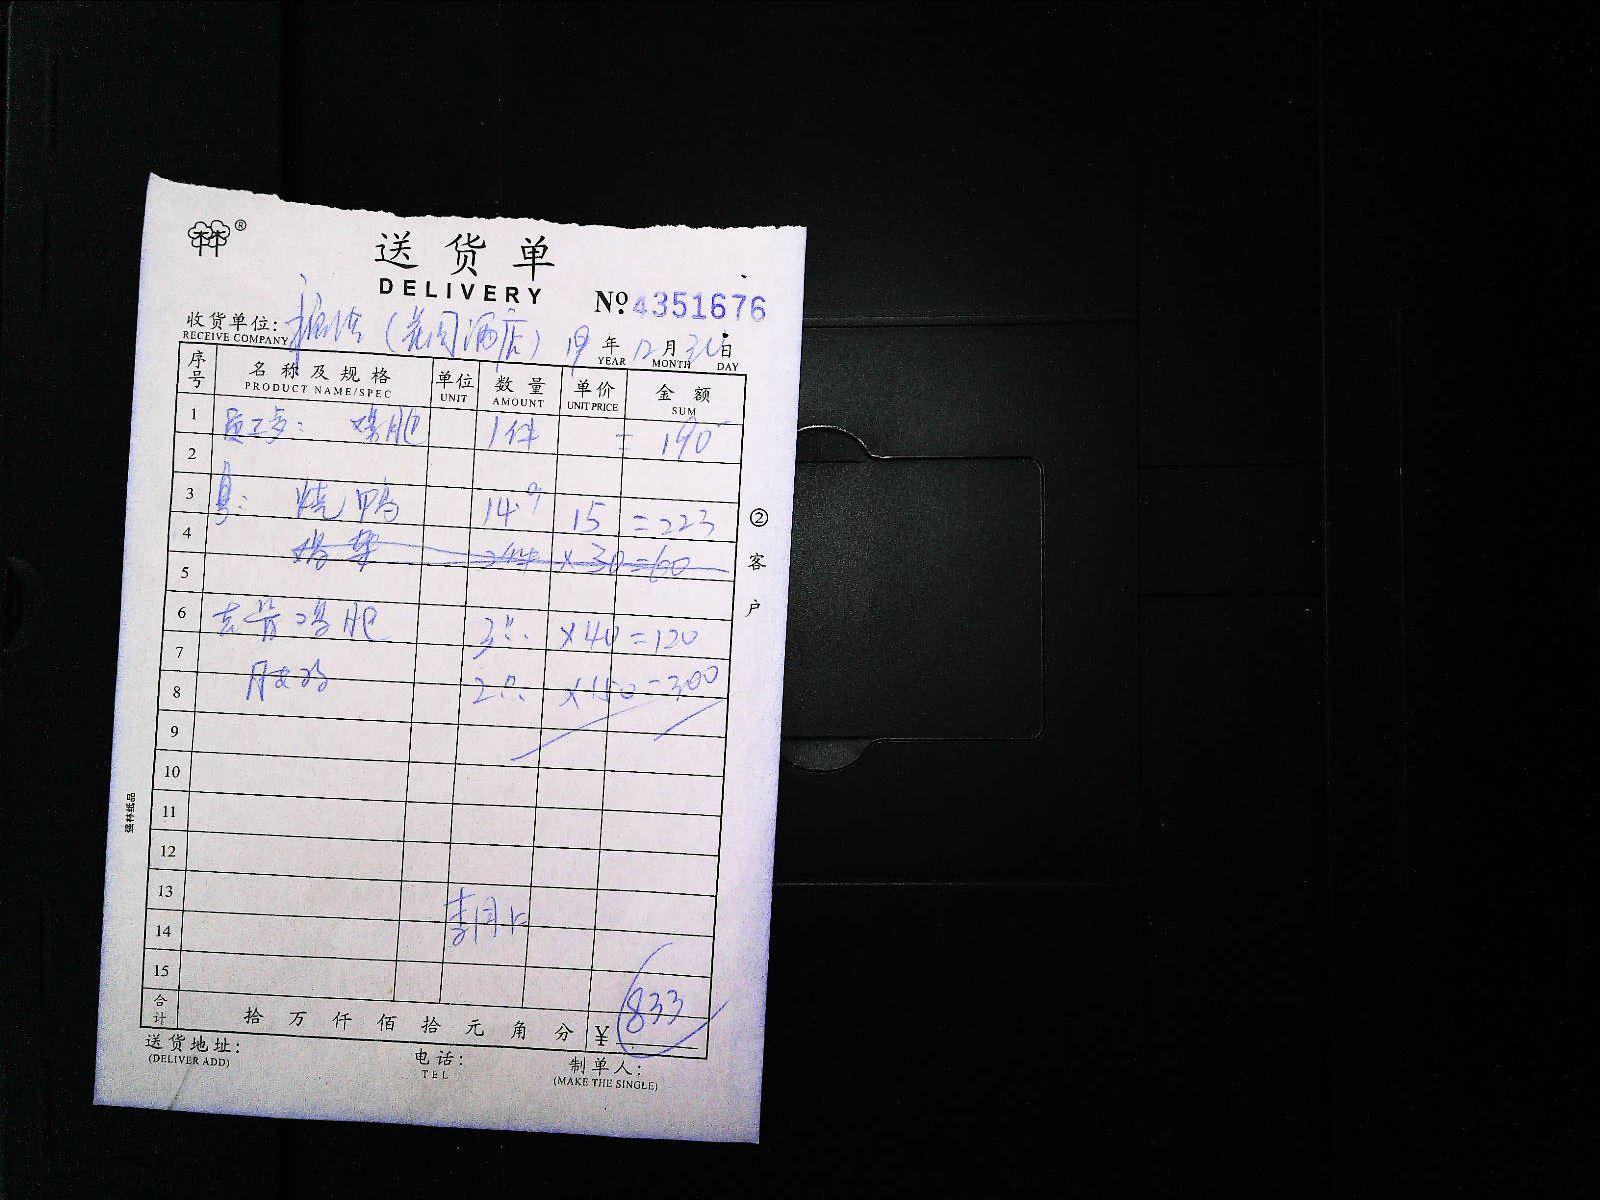 林®
送货单
DELIVERY
№ 4351676
收货单位: (花园酒店) 19年12月31日
RECEIVE COMPANY YEAR MONTH DAY
序号 名称及规格 单位 数量 单价 金额
PRODUCT NAME/SPEC UNIT AMOUNT UNIT PRICE SUM
1 1件 = 190
2
3 烧鸭 14.9 15 =223
4 鸡架 2件 ×30=60
5
6 去骨 3只 ×40=120
7
8 2只 ×150=300
9
10
11
12
13
14
15
合计 拾万仟佰拾元角分 ¥ 833
送货地址: 电话: 制单人:
(DELIVER ADD) TEL (MAKE THE SINGLE)
②客户
强林纸品